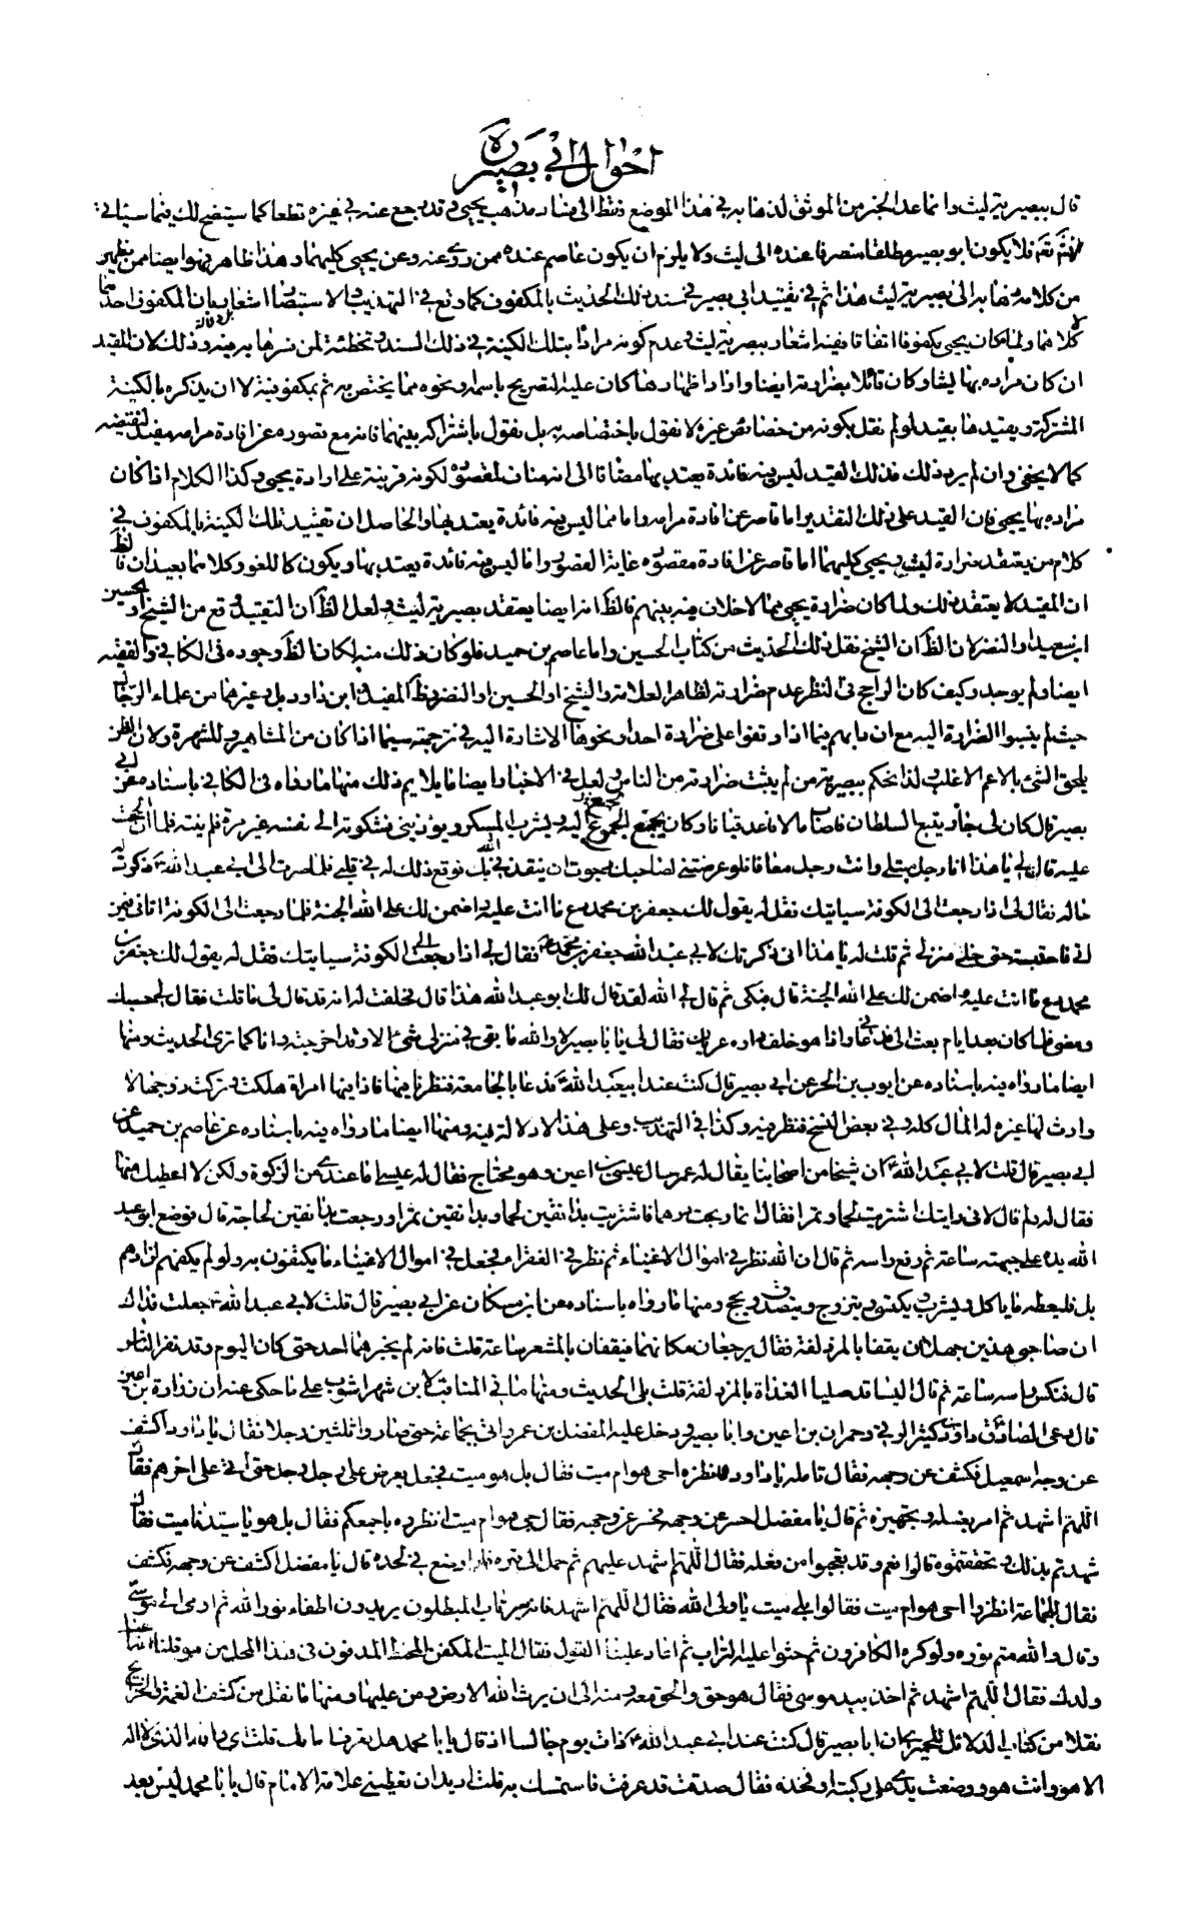 احوال ابی بصیر
قال ببصيرية ليث وانما عد الخبر من الموثق لذهابه في هذا الموضع فقط الى فساد مذهب يحيى وقد رجع عنه في غيره قطعا كما سيتضح لك فيما سيأتي
ثم فلا يكون ابو بصير مطلقا منصرفا عنده الى ليث ولا يلزم ان يكون عاصم عنده ممن روى عنه وعن يحيى كليهما وهذا ظاهر
من كلامه ذهابه الى بصيرية ليث هذا ثم في تقييد ابي بصير في سند ذلك الحديث بالمكفوف كما وقع في التهذيب والاستبصار اشعار بان المكفوف احدهما
لا كلاهما ولما كان يحيى مكفوفا اتفاقا ففيه اشعار ببصرية ليث وعدم كونه مرادا بتلك الكنية في ذلك السند وتخطئة لمن فسرها به وذلك لان المقيد
ان كان مراده بها ليثا وكان قائلا بضرارته ايضا واراد اظهارها كان عليه التصريح باسمه ونحوه مما يختص به ثم بمكفوفيته لا ان يذكره بالكنية
المشتركة ويقيدها بقيد لو لم نقل بكونه من خصائص غيره لا نقول باختصاصه به بل نقول باشتراكه بينهما فانه مع قصوره عن افادة مرامه مفيد لنقيضه
كما لا يخفى وان لم يرد ذلك فذلك القيد ليس فيه فائدة يعتد بها مضافا الى انه مناف لمقصوده لكونه قرينة على ارادة يحيى وكذا الكلام اذا كان
مراده بها يحيى فان القيد على ذلك التقدير اما قاصر عن افادة مرامه واما مما ليس فيه فائدة يعتد بها والحاصل ان تقييد تلك الكنية بالمكفوف في
كلام من يعتقد ضرارة ليث ويحيى كليهما اما قاصر عن افادة مقصوده غاية القصور واما ليس فيه فائدة يعتد بها ويكون كاللغو وكلاهما بعيدان فالظ
ان المقيد لا يعتقد ذلك ولما كان ضرارة يحيى مما لا خلاف فيه بينهم فالظ انه ايضا يعتقد بصيرية ليث ولعل الظ ان التقييد وقع من الشيخ او الحسين
ابن سعيد او النضر لان الظ ان الشيخ نقل ذلك الحديث من كتاب الحسين واما عاصم بن حميد فلو كان ذلك منه لكان الظ وجوده في الكافي والفقيه
ايضا ولم يوجد وكيف كان الراجح في النظر عدم ضرارته لظاهر العلامة والشيخ او الحسين او النضر وظ المفيد وابن داود بل وغيرهما من علماء الرجال
حيث لم ينسبوا الضرارة اليه مع ان دأبهم فيما اذا وقفوا على ضرارة احد ونحوها الاشارة اليه في ترجمته سيما اذا كان من المشاهير وللشهرة ولان الظن
يلحق الشئ بالاعم الاغلب ولذا نحكم ببصيرية من لم يثبت ضرارته من الناس ولعل في الاخبار ايضا ما يلايم ذلك منها ما رواه في الكافي باسناده عن ابي
بصير قال كان لي جار يتبع السلطان فاصاب مالا فاعد قيانا وكان يجمع الجموع اليه ويشرب المسكر ويؤذيني فشكوته الى نفسه غير مرة فلم ينته فلما ان الححت
عليه قال لي يا هذا انا رجل مبتلى وانت رجل معافا فلو عرضتني لصاحبك رجوت ان ينقذني الله بك فوقع ذلك له في قلبي فلما صرت الى ابي عبد الله ع ذكرت له
حاله فقال لي اذا رجعت الى الكوفة سيأتيك فقل له يقول لك جعفر بن محمد دع ما انت عليه واضمن لك على الله الجنة فلما رجعت الى الكوفة اتاني فيمن
اتى فاحتبسته حتى خلى منزلي ثم قلت له يا هذا اني ذكرتك لابي عبد الله جعفر بن محمد ع فقال لي اذا رجعت الى الكوفة سيأتيك فقل له يقول لك جعفر بن
محمد دع ما انت عليه واضمن لك على الله الجنة قال فبكى ثم قال لي الله لقد قال لك ابو عبد الله هذا قال فحلفت له انه قد قال لي ما قلت فقال لي حسبك
ومضى فلما كان بعد ايام بعث الي فدعاني واذا هو خلف داره عريان فقال لي يا ابا بصير لا والله ما بقي في منزلي شئ الا وقد اخرجته وانا كما ترى الحديث ومنها
ايضا ما رواه فيه باسناده عن ايوب بن الحر عن ابي بصير قال كنت عند ابي عبد الله ع فدعا بالجامعة فنظر فيها فاذا فيها امراة هلكت وتركت زوجها لا
وارث لها غيره له المال كله وفي بعض النسخ فنظر فيه وكذا في التهذيب وعلى هذا لا دلالة فيه ومنها ايضا ما رواه فيه باسناده عن عاصم بن حميد عن
ابي بصير قال قلت لابي عبد الله ع ان شيخا من اصحابنا يقال له عمر سال عيسى بن اعين وهو محتاج فقال له عيسى اما عندي من الزكوة ولكن لا اعطيك منها
فقال له ولم قال لاني رايتك اشتريت لحما وتمرا فقال انما ربحت درهما فاشتريت بدانقين لحما وبدانقين تمرا ورجعت بدانقين لحاجة قال فوضع ابو عبد
الله يده على جبهته ساعة ثم رفع راسه ثم قال ان الله نظر في اموال الاغنياء ثم نظر في الفقراء فجعل في اموال الاغنياء ما يكتفون به ولو لم يكفهم لزادهم
بل فليعطه ما ياكل ويشرب ويكتسى ويتزوج ويتصدق ويحج ومنها ما رواه باسناده عن ابن مسكان عن ابي بصير قال قلت لابي عبد الله ع جعلت فداك
ان صاحبي هذين جهلا ان يقفا بالمزدلفة فقال يرجعان مكانهما فيقفان بالمشعر ساعة قلت فانه لم يخبرهما احد حتى كان اليوم وقد نفر الناس
قال فنكس راسه ساعة ثم قال اليسا قد صليا الغداة بالمزدلفة قلت بلى الحديث ومنها ما في المناقب لابن شهراشوب على ما حكى عنه ان زرارة بن اعين
قال دعى الصادق داود بن كثير الرقي وحمران بن اعين وابا بصير ودخل عليه المفضل بن عمر واتى بجماعة حتى صاروا ثلثين رجلا فقال يا داود اكشف
عن وجه اسمعيل فكشف عن وجهه فقال تامله يا داود فانظره احي هو ام ميت فقال بل هو ميت فجعل يعرض على رجل رجل حتى اتى على اخرهم فقال
اللهم اشهد ثم امر بغسله وتجهيزه ثم قال يا مفضل احسر عن وجهه فحسر عن وجهه فقال حي هو ام ميت انظروه باجمعكم فقال بل هو يا سيدنا ميت فقال
شهدتم بذلك وتحققتموه قالوا نعم وقد تعجبوا من فعله فقال اللهم اشهد عليهم ثم حمل الى قبره فلما وضع في لحده قال يا مفضل اكشف عن وجهه فكشف
فقال للجماعة انظروا احي هو ام ميت فقالوا بلى ميت يا ولي الله فقال اللهم اشهد فانه سيرتاب المبطلون يريدون اطفاء نور الله ثم اومى الى موسى
وقال والله متم نوره ولو كره الكافرون ثم حثوا عليه التراب ثم اعاد علينا القول فقال الميت المكفن المحنط المدفون في هذا اللحد من هو قلنا اسمعيل
ولدك فقال اللهم اشهد ثم اخذ بيد موسى فقال هو حق والحق معه ومنه الى ان يرث الله الارض ومن عليها ومنها ما نقل من كشف الغمة والخرائج
نقلا من كتاب الدلائل للحميري ان ابا بصير قال كنت عند ابي عبد الله ع ذات يوم جالسا اذ قال يا ابا محمد هل تعرف امامك قلت اي والله الذي لا اله
الا هو وانت هو ووضعت يدي على ركبته او فخذه فقال صدقت قد عرفت فاستمسك به قلت اريد ان تعطيني علامة الامام قال يا ابا محمد ليس بعد